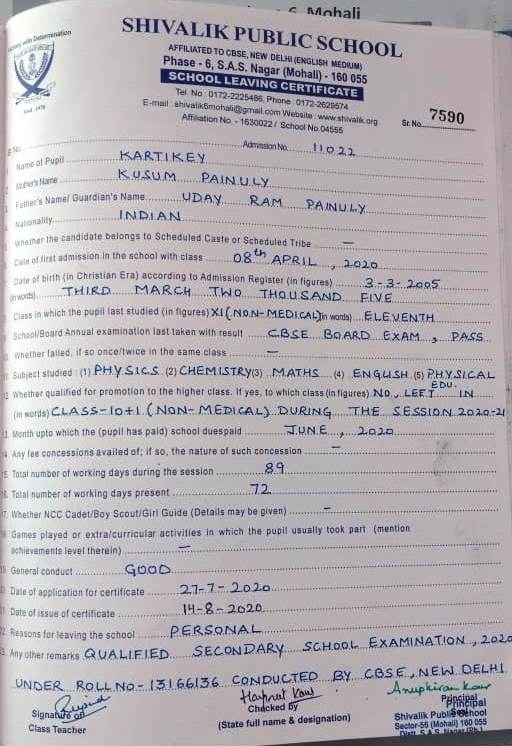 6 Mohali
SHIVALIK PUBLIC SCHOOL
AFFILIATED TO CBSE, NEW DELHI (ENGLISH MEDIUM)
Phase - 6, S.A.S. Nagar (Mohali) - 160 055
SCHOOL LEAVING CERTIFICATE
Tel. No : 0172-2225486, Phone : 0172-2629574
E-mail : shivalik6mohali@gmail.com Website : www.shivalik.org
Affiliation No. - 1630022 / School No.04555
Sr. No. 7590
with Determination
Estd. 1976
Admission No. 11022
Name of Pupil KARTIKEY
Mother's Name KUSUM PAINULY
Father's Name/ Guardian's Name UDAY RAM PAINULY
Nationality INDIAN
Whether the candidate belongs to Scheduled Caste or Scheduled Tribe —
Date of first admission in the school with class 08th APRIL, 2020
Date of birth (in Christian Era) according to Admission Register (in figures) 3-3-2005
(in words) THIRD MARCH TWO THOUSAND FIVE
Class in which the pupil last studied (in figures) XI (NON-MEDICAL) (in words) ELEVENTH
School/Board Annual examination last taken with result CBSE BOARD EXAM, PASS
Whether failed, if so once/twice in the same class —
Subject studied : (1) PHYSICS (2) CHEMISTRY (3) MATHS (4) ENGLISH (5) PHYSICAL EDU.
Whether qualified for promotion to the higher class. If yes, to which class (in figures) NO, LEFT IN
(in words) CLASS-10+1 (NON-MEDICAL) DURING THE SESSION 2020-21
Month upto which the (pupil has paid) school duespaid JUNE, 2020
Any fee concessions availed of; if so, the nature of such concession —
Total number of working days during the session 89
Total number of working days present 72
Whether NCC Cadet/Boy Scout/Girl Guide (Details may be given) —
Games played or extra/curricular activities in which the pupil usually took part (mention
achievements level therein) —
General conduct GOOD
Date of application for certificate 27-7-2020
Date of issue of certificate 14-8-2020
Reasons for leaving the school PERSONAL
Any other remarks QUALIFIED SECONDARY SCHOOL EXAMINATION, 2020
UNDER ROLL NO- 13166136 CONDUCTED BY CBSE, NEW DELHI
Harpreet Kaur
Anupkiran Kaur
Signature of
Class Teacher
Checked by
(State full name & designation)
Principal
Seal
Principal
Shivalik Public School
Sector-56 (Mohali) 160 055
Distt. S.A.S. Nagar (Pb.)